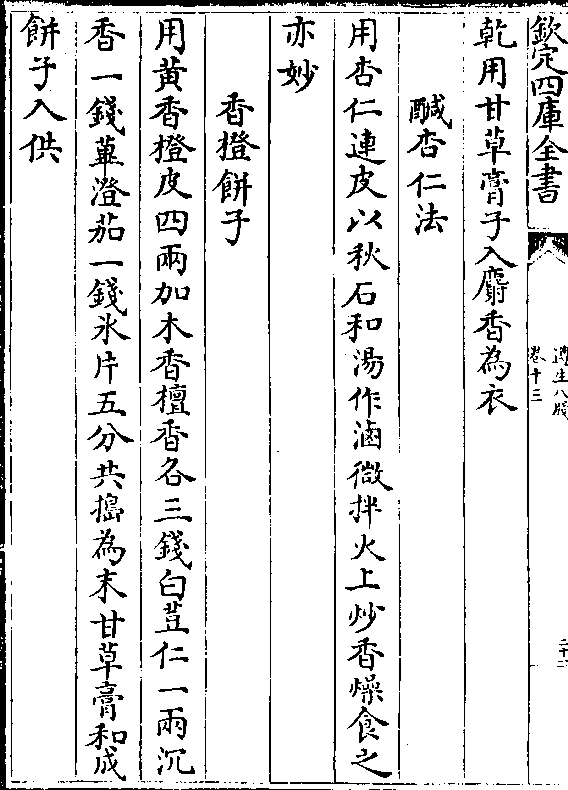 欽定四庫全書
遵生八牋
卷十三
二十二
乾用甘草膏子入麝香為衣
醎杏仁法
用杏仁連皮以秋石和湯作滷微拌火上炒香燥食之
亦妙
香橙餅子
用黄香橙皮四兩加木香檀香各三錢白荳仁一兩沉
香一錢蓽澄茄一錢氷片五分共搗為末甘草膏和成
餅子入供